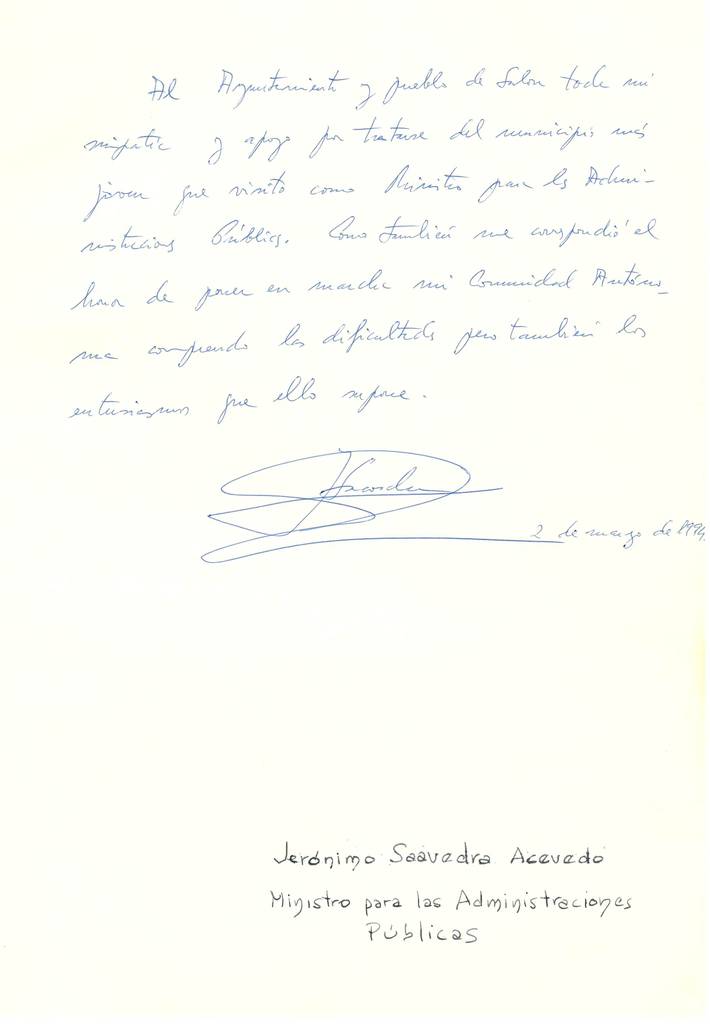 Al Ayuntamiento y pueblo de Salou toda mi
simpatía y apoyo por tratarse del municipio más
joven que visito como Ministro para las Admi-
nistraciones Públicas. Como también me correspondió el
honor de poner en marcha mi Comunidad Autóno-
ma comprendo las dificultades pero también los
entusiasmos que ello supone.
2 de marzo de 1994
Jerónimo Saavedra Acevedo
Ministro para las Administraciones
Públicas